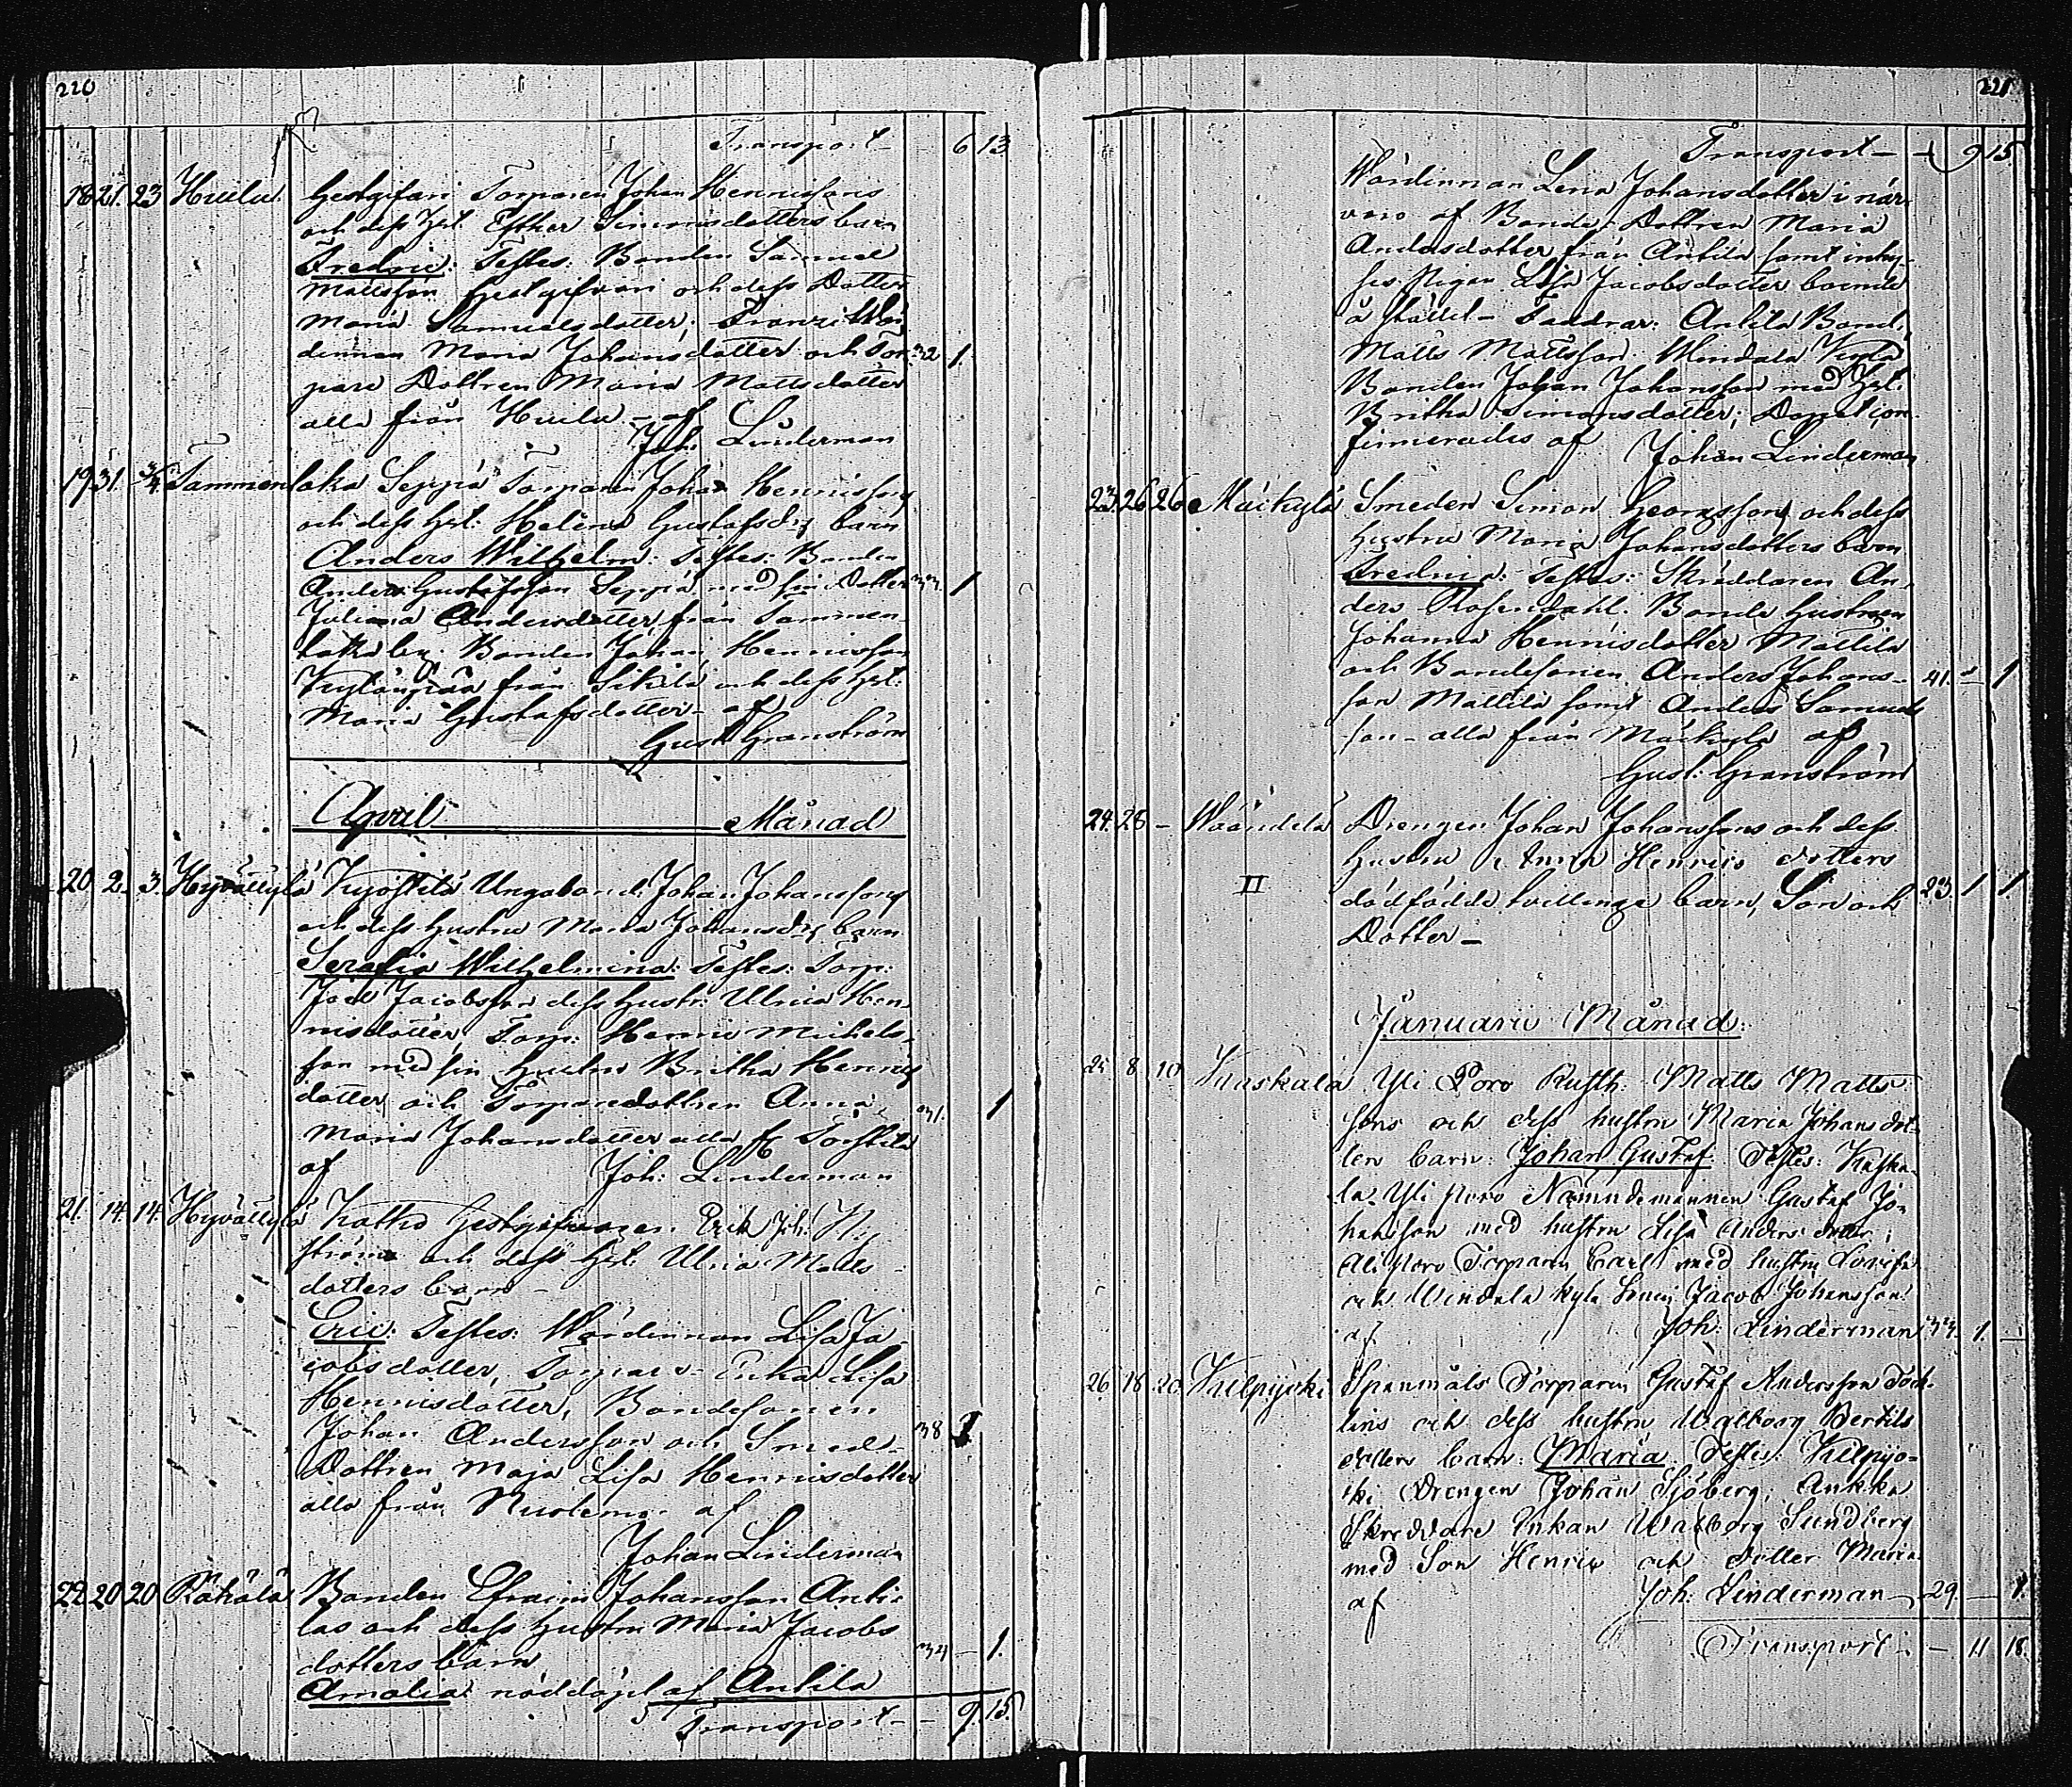 220
Transport – 6 13
18 21. 23 Huilu. Gestgifvari Torparen Johan Henricssons
och dess hst. Esther Simonsdotters barn
Fredric: Testes: Bonden Samuel
Mattsson Gestgifvari och dess Dotter
Maria Samuelsdotter; Franzi Wär-
dinnan Maria Johansdotter och Tor- 32 1.
pare Dottren Maria Mattsdotter
alla från Huilu – af
Joh. Linderman
19 31. 3/4 Tammenlaka Seppä Torparen Johan Henricssons
och dess hst: Helena Gustafsdrs barn
Anders Wilhelm: Testes: Bonden
Anders Gustafsson Seppä med sin Dotter 33. 1
Juliana Andersdotter från Tammen-
laka by. Bonden Johan Henricsson
från Sikilä och dess hst:
Maria Gustafsdotter – af
Gust. Granström
April Månad
20 2. 3. Hyvättylä Kyöstilä Ungabond. Johan Johanssons
och dess hustru Maria Johansdrs barn
Serafia Wilhelmina: Testes: Torp:
Joel Jacobsson dess hustr: Ulrica Hen-
ricsdotter Torp: Henric Michels-
son med sin hustru Britha Henrics
dotter och Torparedottren Anna 31. 1
Maria Johansdotter alla fr
af Joh: Linderman
21. 14. 14. Hyvättylä Kattho Gestgifvaren Erik Joh: Ny-
ström och dess hst. Ulrica Matts-
dotters barn –
Eric: Testes: Wärdinnan Lisa Ja-
cobsdotter, Torpare Enka Lisa
Henricsdotter, Bondesonen
Johan Andersson och Smed- 38 1
Dottren Maja Lisa Henricsdotter
alla från af
Johan Linderman
22 20 20 Räkälä Bonden Efraim Johansson Anti-
las och dess hustru Maria Jacobs
dotters barn 34 – 1.
Amalia nöddöpt af Antila
Transport – – 9. 15.
221
Transport – – 9 15
Wärdinnan Lena Johansdotter i när-
varo af Bonde Dottren Maria
Andersdotter från Antila samt inhy-
ses Pigan Lisa Jacobsdotter boende
å stället – Faddrar: Antila Bond.
Matts Mattsson. Mindala Kylä
Bonden Johan Johansson med hst:
Britha Simonsdotter; Dopet con-
firmerades af
Johan Linderman
23. 26 26 Mäikylä Smeden Simon Georgssons och dess
hustru Maria Johansdotters barn
Fredric: Testes: Skräddaren An-
ders Rosendahl. Bonde hustrun
Johanna Henricsdotter Mattila
och Bondesonen Anders Johans- 41. – 1
son Mattila samt Anders Samuels
son – alla från Mäikylä af
Gust: Granström
24. 28 – Wäändelä Drengen Johan Johanssons och dess
hustru Anna Henrics dotters
II dödfödda tvillinge barn, Son och 23. 1 1.
Dotter –
Januarii Månad:
25 8 10 Kaskala Yli Poro Rusth: Matts Matts-
sons och dess hustru Maria Johansdot-
ters barn: Johan Gustaf. Testes: Kaska-
la Yli poro Nämndemannen Gustaf Jo-
hansson med hustru Lisa Anders dotter;
Ali poro Torparen Carl med hustru Lovisa
och Mindala kylä Sonen Jacob Johansson
af Joh: Linderman 33. 1. –
26 18 20 Kilpijoki Spannmåls Torparen Gustaf Andersson
lins och dess hustru Walborg Bertils
dotters barn: Maria Testes: Kilpijo-
ki Drengen Johan Sjöberg; Ankka
Skreddare Enkan Walborg Sundberg
med Son Henric och dotter Maria
af Joh: Linderman – 29. – 1.
Transport – – 11 18.